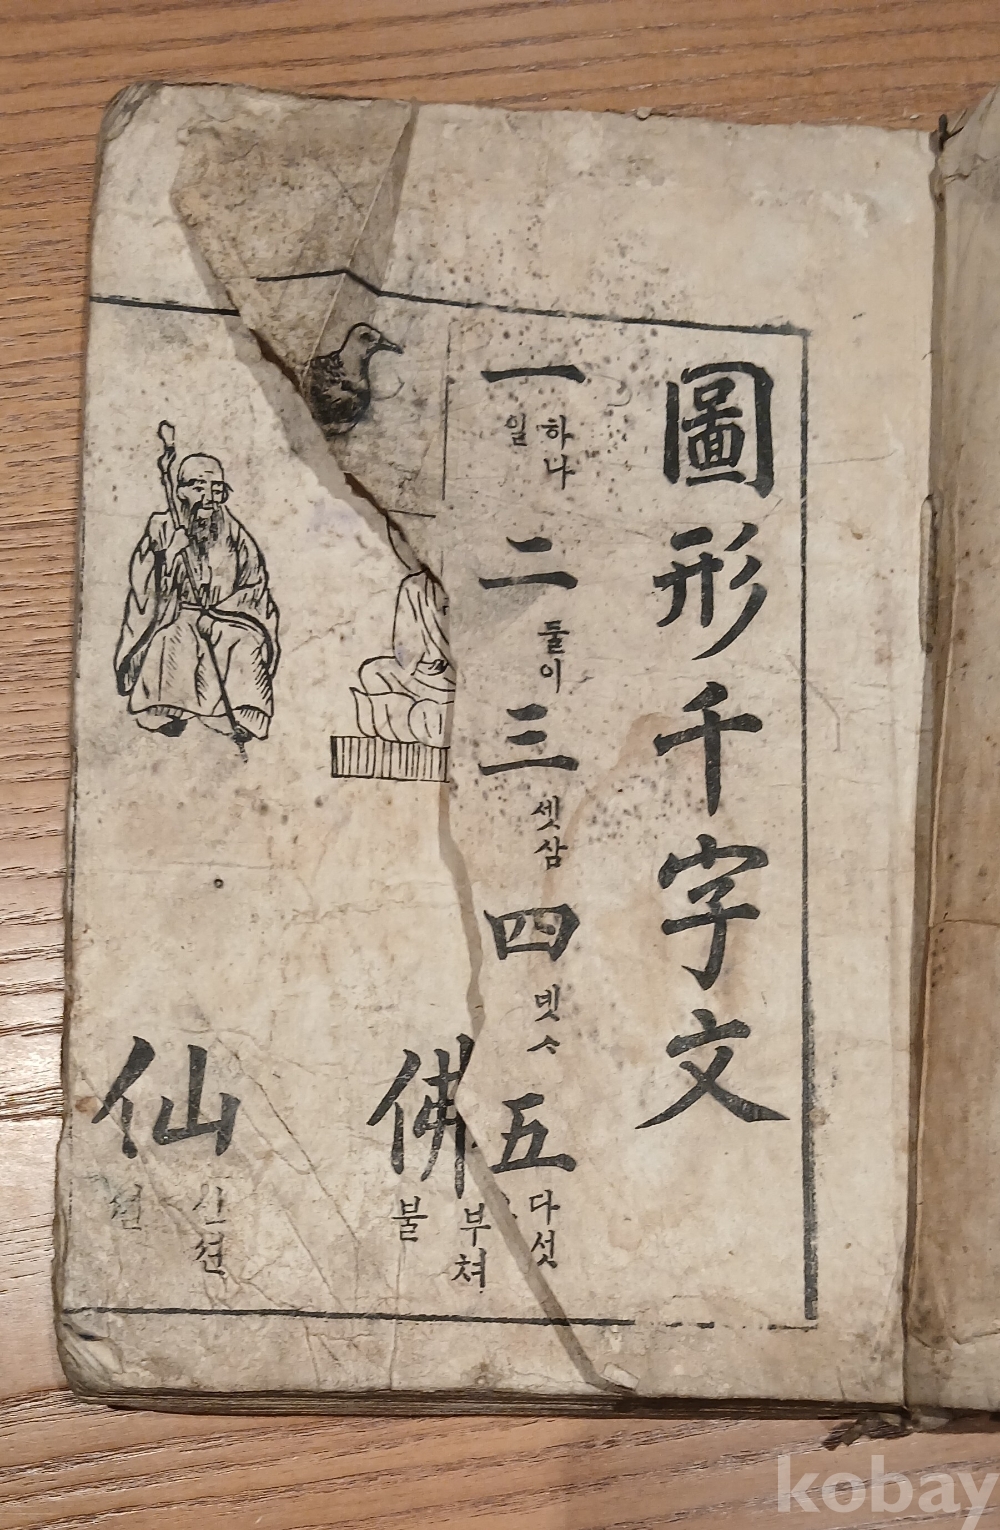 圖形千字文
一 하나 일
二 둘이
三 셋삼
四 넷ㅅ
五 다섯
佛 부쳐 불
仙 신션 션
kobay